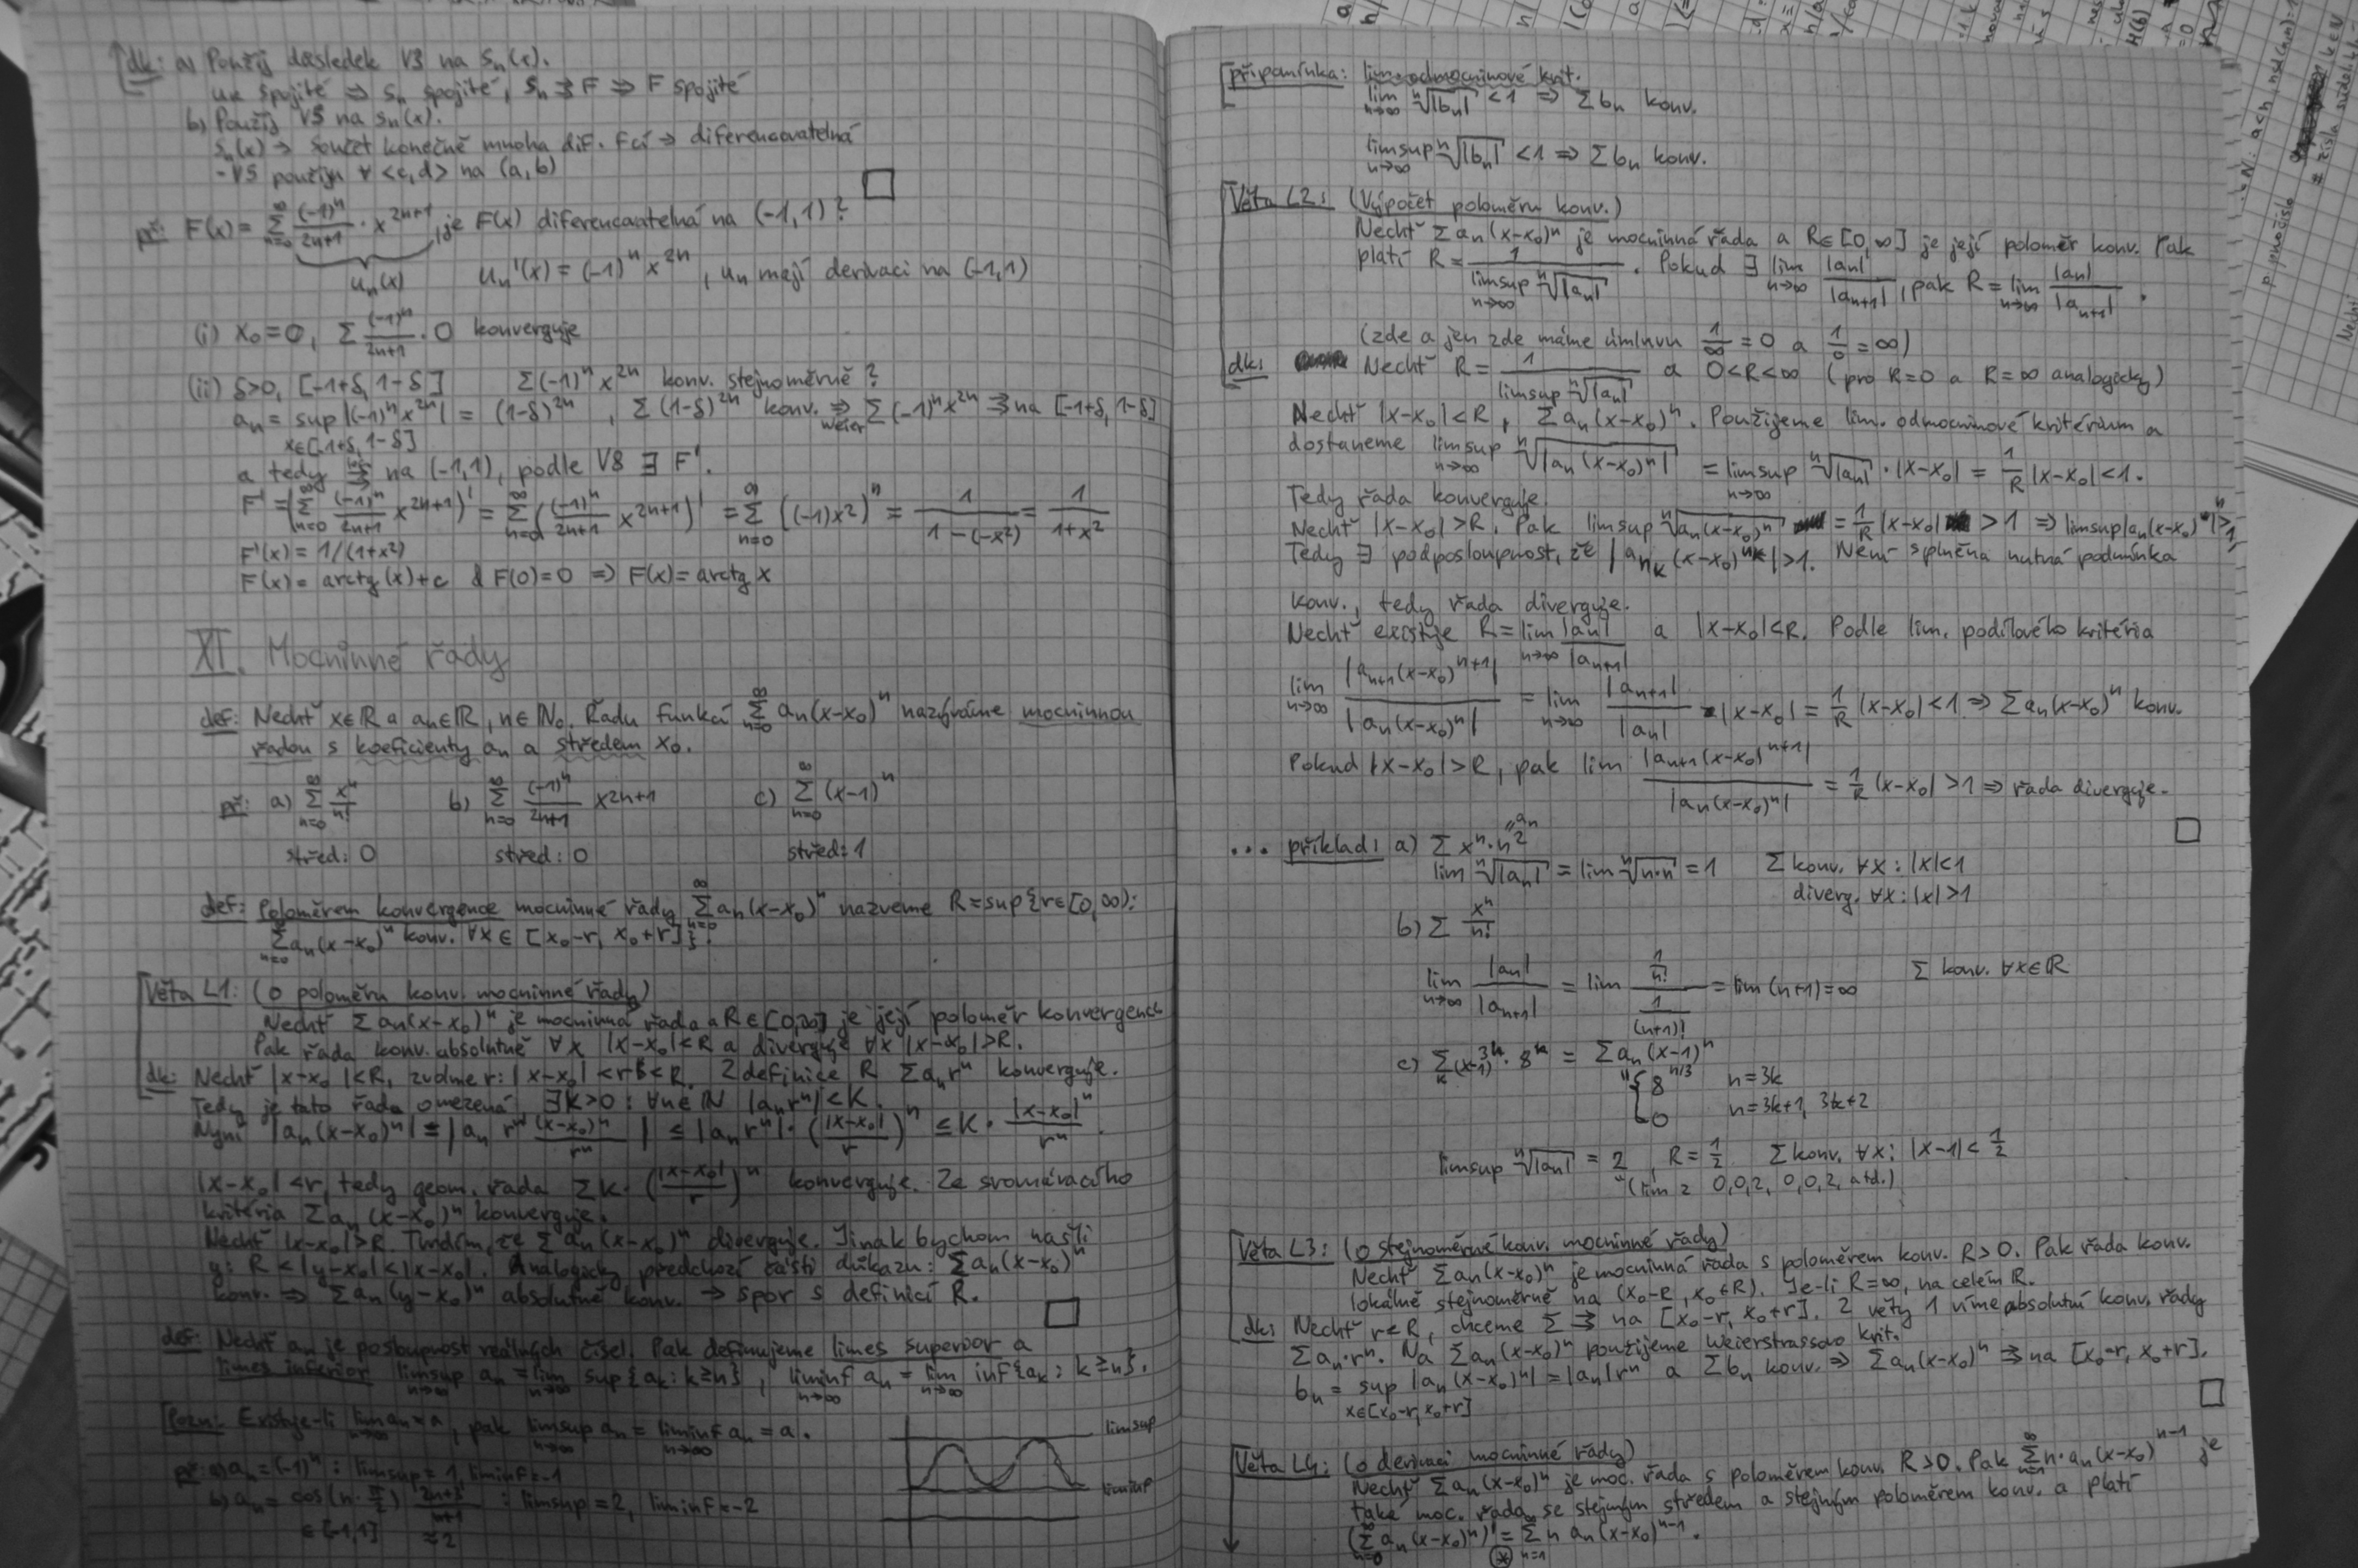 dk: a) Použij důsledek V3 na Sn(x).
un spojité ⇒ Sn spojité, Sn ⇉ F ⇒ F spojité
b) Použij V5 na sn(x).
sn(x) → součet konečně mnoha dif. fcí → diferencovatelná
-V5 použiju ∀ <c,d> na (a,b) □
př: F(x) = ∑_{n=0}^{∞} (-1)^n/(2n+1) · x^{2n+1}, je F(x) diferencovatelná na (-1,1)?
un(x) un'(x) = (-1)^n x^{2n}, un mají derivaci na (-1,1)
(i) x0=0, ∑ (-1)^n/(2n+1) · 0 konverguje
(ii) δ>0, [-1+δ, 1-δ] ∑(-1)^n x^{2n} konv. stejnoměrně?
an = sup_{x∈[-1+δ, 1-δ]} |(-1)^n x^{2n}| = (1-δ)^{2n}, ∑(1-δ)^{2n} konv. ⇒_{Weier} ∑(-1)^n x^{2n} ⇉ na [-1+δ, 1-δ]
a tedy ⇉ na (-1,1), podle V8 ∃ F'.
F' = (∑_{n=0}^{∞} (-1)^n/(2n+1) x^{2n+1})' = ∑_{n=0}^{∞} ((-1)^n/(2n+1) x^{2n+1})' = ∑_{n=0}^{∞} ((-1)x²)^n = 1/(1-(-x²)) = 1/(1+x²)
F'(x) = 1/(1+x²)
F(x) = arctg(x)+c & F(0)=0 ⇒ F(x) = arctg x
XI. Mocninné řady
def: Nechť x∈ℝ a an∈ℝ, n∈ℕ0. Řadu funkcí ∑_{n=0}^{∞} an(x-x0)^n nazýváme mocninnou
řadou s koeficienty an a středem x0.
př: a) ∑_{n=0}^{∞} x^n/n! b) ∑_{n=0}^{∞} (-1)^n/(2n+1) x^{2n+1} c) ∑_{n=0}^{∞} (x-1)^n
střed: 0 střed: 0 střed: 1
def: Poloměrem konvergence mocninné řady ∑_{n=0}^{∞} an(x-x0)^n nazveme R = sup{r∈[0,∞):
∑_{n=0}^{∞} an(x-x0)^n konv. ∀x∈[x0-r, x0+r]}.
Věta L1: (o poloměru konv. mocninné řady)
Nechť ∑an(x-x0)^n je mocninná řada a R∈[0,∞] je její poloměr konvergence
Pak řada konv. absolutně ∀x |x-x0|<R a diverguje ∀x |x-x0|>R.
dk: Nechť |x-x0|<R, zvolme r: |x-x0|<r<R. Z definice R ∑anr^n konverguje.
Tedy je tato řada omezená ∃K>0: ∀n∈ℕ |anr^n|<K.
Nyní |an(x-x0)^n| = |an r^n (x-x0)^n/r^n| ≤ |anr^n|·(|x-x0|/r)^n ≤ K·|x-x0|^n/r^n.
|x-x0|<r, tedy geom. řada ∑K·(|x-x0|/r)^n konverguje. Ze srovnávacího
kritéria ∑an(x-x0)^n konverguje.
Nechť |x-x0|>R. Tvrdím, že ∑an(x-x0)^n diverguje. Jinak bychom našli
y: R<|y-x0|<|x-x0|. Analogicky předchozí části důkazu: ∑an(x-x0)^n
konv. ⇒ ∑an(y-x0)^n absolutně konv. → spor s definicí R. □
def: Nechť an je posloupnost reálných čísel. Pak definujeme limes superior a
limes inferior limsup_{n→∞} an = lim_{n→∞} sup{ak: k≥n}, liminf_{n→∞} an = lim_{n→∞} inf{ak: k≥n}.
Pozn: Existuje-li lim_{n→∞} an = a, pak limsup_{n→∞} an = liminf_{n→∞} an = a.
limsup
liminf
př: a) an = (-1)^n : limsup = 1, liminf = -1
b) an = cos(n·π/2) (2n+3)/(n+1) : limsup = 2, liminf = -2
∈[-1,1] ≈2
připomínka: lim. odmocninové krit.
lim_{n→∞} ⁿ√|bn| < 1 ⇒ ∑bn konv.
limsup_{n→∞} ⁿ√|bn| < 1 ⇒ ∑bn konv.
Věta L2: (Výpočet poloměru konv.)
Nechť ∑an(x-x0)^n je mocninná řada a R∈[0,∞] je její poloměr konv. Pak
platí R = 1/(limsup_{n→∞} ⁿ√|an|). Pokud ∃ lim_{n→∞} |an|/|an+1|, pak R = lim_{n→∞} |an|/|an+1|.
(zde a jen zde máme úmluvu 1/∞ = 0 a 1/0 = ∞)
dk: Nechť R = 1/(limsup ⁿ√|an|) a 0<R<∞ (pro R=0 a R=∞ analogicky)
Nechť |x-x0|<R, ∑an(x-x0)^n. Použijeme lim. odmocninové kritérium a
dostaneme limsup_{n→∞} ⁿ√|an(x-x0)^n| = limsup_{n→∞} ⁿ√|an| · |x-x0| = 1/R |x-x0| < 1.
Tedy řada konverguje.
Nechť |x-x0|>R. Pak limsup ⁿ√an(x-x0)^n = 1/R |x-x0| > 1 ⇒ limsup|an(x-x0)^n|>1
Tedy ∃ podposloupnost, že |a_{nk}(x-x0)^{nk}|>1. Není splněna nutná podmínka
konv., tedy řada diverguje.
Nechť existuje R = lim_{n→∞} |an|/|an+1| a |x-x0|<R. Podle lim. podílového kritéria
lim_{n→∞} |an+1(x-x0)^{n+1}|/|an(x-x0)^n| = lim_{n→∞} |an+1|/|an| · |x-x0| = 1/R |x-x0| < 1 ⇒ ∑an(x-x0)^n konv.
Pokud |x-x0|>R, pak lim |an+1(x-x0)^{n+1}|/|an(x-x0)^n| = 1/R |x-x0| > 1 ⇒ řada diverguje. □
... příklad: a) ∑x^n·n² =an
lim ⁿ√|an| = lim ⁿ√n·n = 1 ∑ konv. ∀x: |x|<1
diverg. ∀x: |x|>1
b) ∑ x^n/n!
lim_{n→∞} |an|/|an+1| = lim (1/n!)/(1/(n+1)!) = lim(n+1) = ∞ ∑ konv. ∀x∈ℝ
c) ∑_k (x-1)^{3k}·8^k = ∑an(x-1)^n
= { 8^{n/3} n=3k
0 n=3k+1, 3k+2
limsup ⁿ√|an| = 2, R = 1/2 ∑ konv. ∀x: |x-1|<1/2
(lim z 0,0,2,0,0,2, atd.)
Věta L3: (o stejnoměrné konv. mocninné řady)
Nechť ∑an(x-x0)^n je mocninná řada s poloměrem konv. R>0. Pak řada konv.
lokálně stejnoměrně na (x0-R, x0+R). Je-li R=∞, na celém ℝ.
dk: Nechť r<R, chceme ∑⇉ na [x0-r, x0+r]. Z věty 1 víme absolutní konv. řady
∑an·r^n. Na ∑an(x-x0)^n použijeme Weierstrassovo krit.
bn = sup_{x∈[x0-r, x0+r]} |an(x-x0)^n| = |an|r^n a ∑bn konv. ⇒ ∑an(x-x0)^n ⇉ na [x0-r, x0+r]. □
Věta L4: (o derivaci mocninné řady)
Nechť ∑an(x-x0)^n je moc. řada s poloměrem konv. R>0. Pak ∑_{n=1}^{∞} n·an(x-x0)^{n-1} je
také moc. řada se stejným středem a stejným poloměrem konv. a platí
(∑_{n=0}^{∞} an(x-x0)^n)' =(*) ∑_{n=1}^{∞} n an(x-x0)^{n-1}.